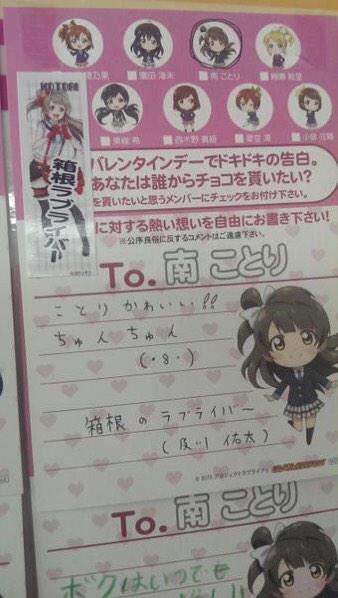 園田 海未
南 ことり
絢瀬 絵里
東條 希
西木野 真姫
星空 凛
小泉 花陽
KOTORI
箱根ラブライバー
バレンタインデーでドキドキの告白。
あなたは誰からチョコを貰いたい?
を貰いたいと思うメンバーにチェックをお付け下さい。
に対する熱い想いを自由にお書き下さい!
※公序良俗に反するコメントはご遠慮下さい。
To. 南 ことり
ことり かわいい!!
ちゅんちゅん
(・8・)
箱根のラブライバー
(及川 佑太)
To. 南 ことり
ボクはいつでも